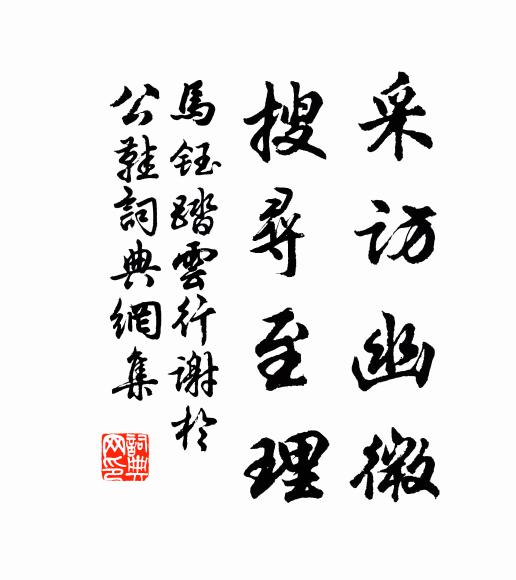 采訪幽微
搜尋至理
馬鈺踏雲行謝於
公鞋詞典網集
詞典
网印